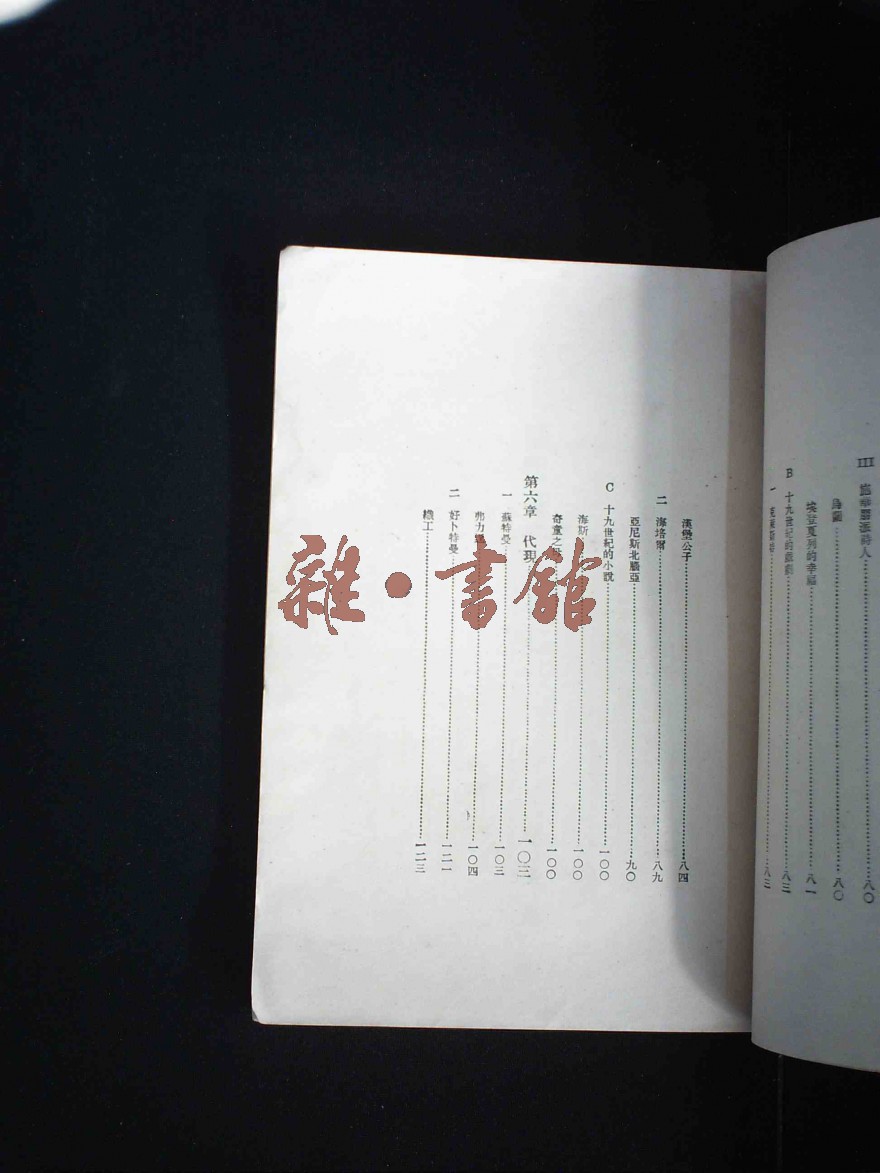 III 盧華麗派詩人……八〇
烏蘭……八〇
埃登夏列的幸福……八一
B 十九世紀的……八三
一……八三
漢堡公子……八四
二 海培爾……八九
亞尼斯北腦亞……九〇
C 十九世紀的小說……一〇〇
海斯……一〇〇
奇童之……一〇〇
第六章 代現……一〇三
一 蘇特曼……一〇三
弗力……一〇四
二 好卜特曼……一二一
織工……一二三
雜·書館